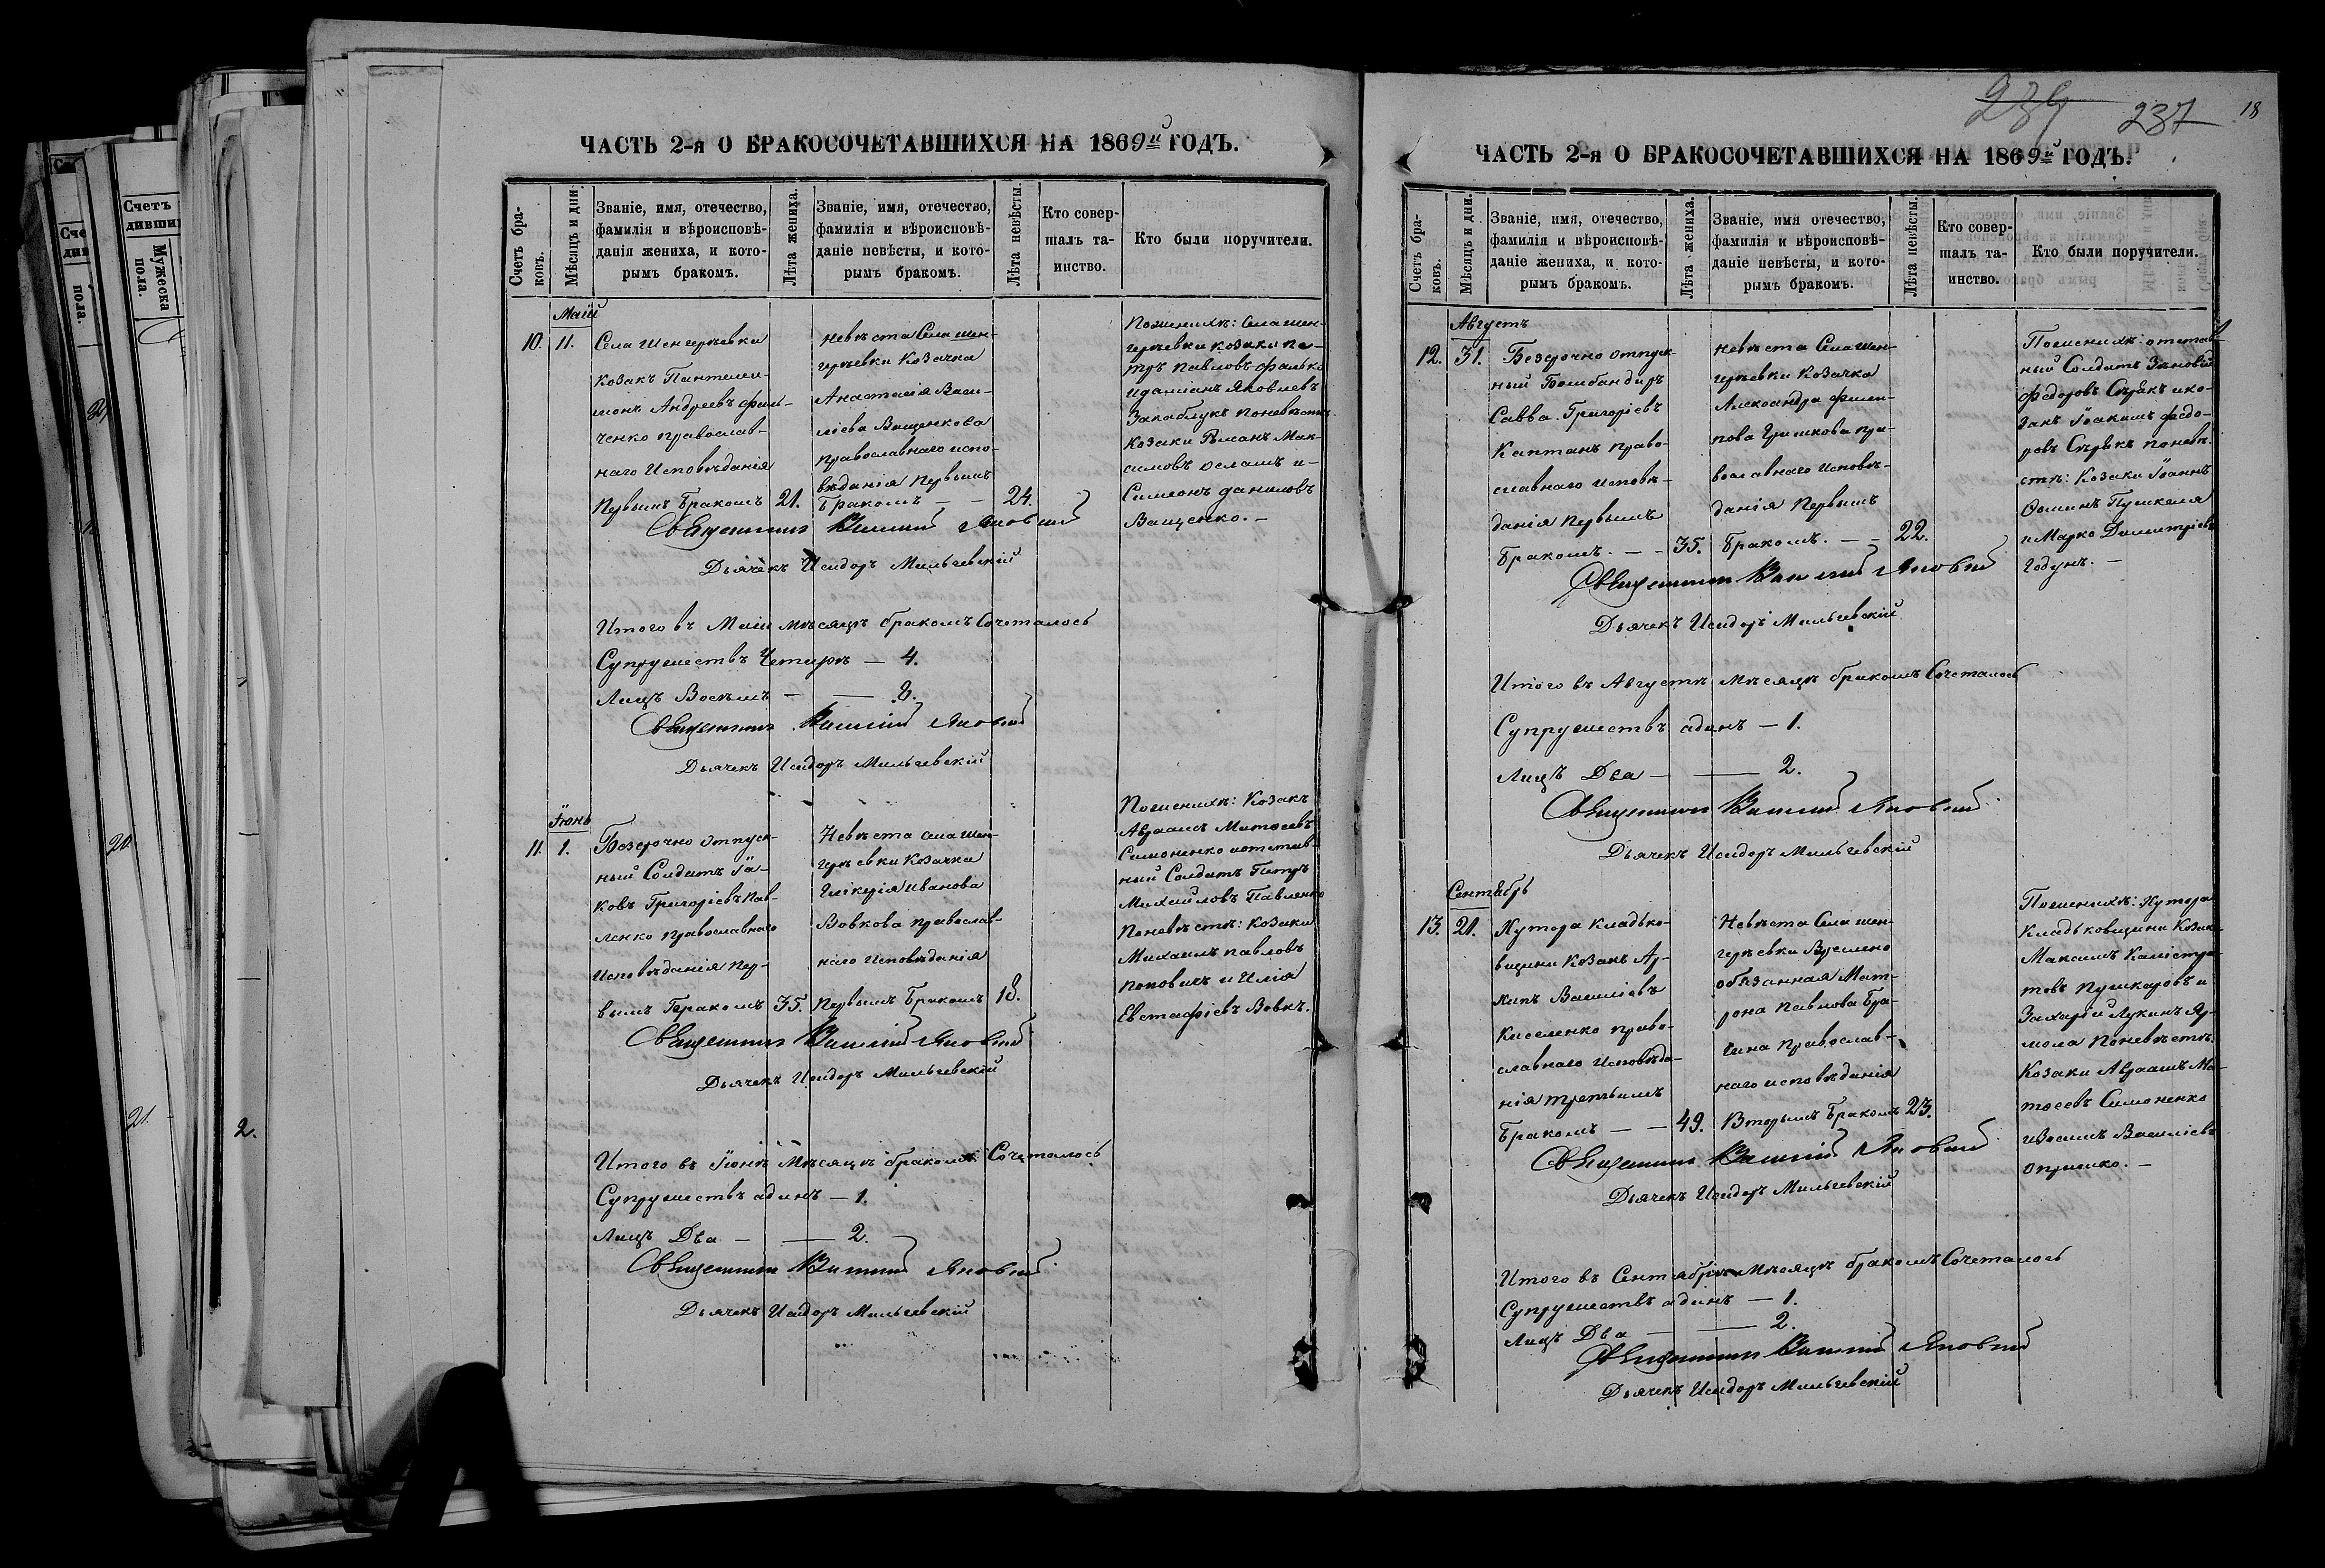 ЧАСТЬ 2-я О БРАКОСОЧЕТАВШИХСЯ НА 1869й ГОДЪ.
Счетъ бра-
ковъ.
Мѣсяцъ и дни.
Званіе, имя, отечество,
фамилія и вѣроисповѣ-
данія жениха, и кото-
рымъ бракомъ.
Лѣта жениха.
Званіе, имя, отечество,
фамилія и вѣроисповѣ-
даніе невѣсты, и кото-
рымъ бракомъ.
Лѣта невѣсты.
Кто совер-
шалъ та-
инство.
Кто были поручители.
Май
10. 11.
Села Шенгерѣевки
Козакъ Пантелеи-
монъ Андреевъ
ченко православ-
наго Исповѣданія
Первымъ Бракомъ 21.
невѣста Села Шен-
герѣевки Козачка
Анастасія Васи-
ліева Ващенкова
православнаго испо-
вѣданія Первымъ
Бракомъ — — 24.
Поженихѣ: Села Шен-
герѣевки козаки Пе-
тръ Павловъ Фалько
идаміанъ Яковлевъ
Закаблукъ поневѣстѣ
Козаки Романъ Мак-
симовъ и-
Симеонъ Даниловъ
Ващенко. —
Священникъ Василій Яновскій
Дьячекъ Исидоръ Мильчевскій
Итого въ Маи мѣсяцѣ бракомъ Сочеталось
Супружествъ Четыре — 4.
Лицъ Восемь — — 8.
Священникъ Василій Яновскій
Дьячекъ Исидоръ Мильчевскій
Іюнь
11. 1.
Безсрочно отпуск-
ный Солдатъ Іа-
ковъ Григоріевъ Пав-
ленко православнаго
Исповѣданія Пер-
вымъ Бракомъ 35.
Невѣста села Шен-
герѣевки Козачка
Гликерія Иванова
Вовкова Православ-
наго Исповѣданія
Первымъ Бракомъ 18.
Поженихѣ: Козакъ
Авраамъ Матѳеевъ
Симоненко иотстав-
ный Солдатъ Петръ
Михайловъ Павленко
Поневѣстѣ: Козаки
Михаилъ Павловъ
Поповичъ и Илія
Евстафіевъ Вовкъ.
Священникъ Василій Яновскій
Дьячекъ Исидоръ Мильчевскій
Итого въ Іюнѣ Мѣсяцѣ бракомъ Сочеталось
Супружествъ адинъ — 1.
Лицъ Два — — 2.
Священникъ Василій Яновскій
Дьячекъ Исидоръ Мильчевскій
237 18
ЧАСТЬ 2-я О БРАКОСОЧЕТАВШИХСЯ НА 1869й ГОДЪ.
Счетъ бра-
ковъ.
Мѣсяцъ и дни.
Званіе, имя, отечество,
фамилія и вѣроисповѣ-
даніе жениха, и кото-
рымъ бракомъ.
Лѣта жениха.
Званіе, имя, отечество,
фамилія и вѣроисповѣ-
даніе невѣсты, и кото-
рымъ бракомъ.
Лѣта невѣсты.
Кто совер-
шалъ та-
инство.
Кто были поручители.
Августъ
12. 31.
Безсрочно отпуск-
ный Бомбандиръ
Савва Григоріевъ
Каптанъ право-
славнаго исповѣ-
данія Первымъ
Бракомъ. — — 35.
невѣста Села Шен-
герѣевки Козачка
Александра Фили-
пова Гришкова пра-
вославнаго исповѣ-
данія Первымъ
Бракомъ. — — 22.
Поженихѣ: отстав-
ный Солдатъ Зѣновій
Федоровъ Сѣрикъ ико-
закъ Іоакимъ Федо-
ровъ Сѣрикъ поневѣ-
стѣ: Козаки Іоаннъ
Ѳоминъ Пушкаля
и Марко Димитріевъ
Годунъ. —
Священникъ Василій Яновскій
Дьячекъ Исидоръ Мильчевскій
Итого въ Августѣ Мѣсяцѣ бракомъ Сочеталось
Супружествъ адинъ — 1.
Лицъ Два — — 2.
Священникъ Василій Яновскій
Дьячекъ Исидоръ Мильчевскій
Сентябрь
13. 21.
Хутора Кладько-
вщини Козакъ Ар-
хипъ Василіевъ
Киселенко право-
славнаго Исповѣда-
нія третьимъ
Бракомъ — — 49.
Невѣста Села Шен-
герѣевки Времено
обязанная Мат-
рона Павлова Бра-
гина Православ-
наго исповѣданія
Вторымъ Бракомъ 23.
Поженихѣ: Хутора
Кладьковщини Козакъ
Максимъ Калістра-
товъ Пушкаровъ и
Захарій Лукинъ Яр-
мола Поневѣстѣ
Козаки Авраамъ Ма-
тѳеевъ Симоненко
Василіевъ
Опришко. —
Священникъ Василій Яновскій
Дьячекъ Исидоръ Мильчевскій
Итого въ Сентябрѣ Мѣсяцѣ бракомъ Сочеталось
Супружествъ адинъ — 1.
Лицъ Два — — 2.
Священникъ Василій Яновскій
Дьячекъ Исидоръ Мильчевскій
Счетъ
дивши
Мужеска
пола.
20.
21.
2.